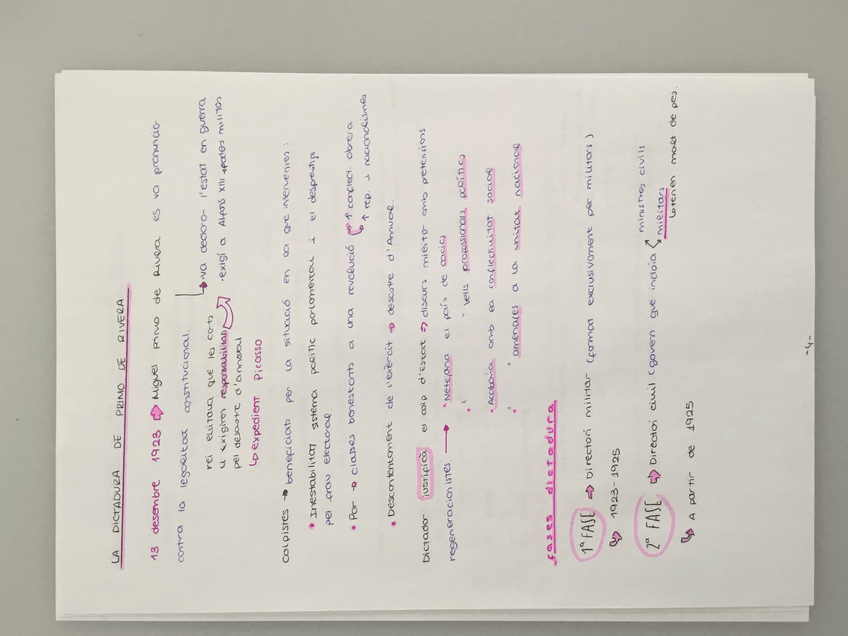 LA DICTADURA DE PRIMO DE RIVERA
13 desembre 1923 ⇨ Miguel Primo de Rivera es va pronunciar
contra la legalitat constitucional.
→ va declarar l'estat en guerra
· exigí a Alfons XIII poders militars
rei evitava que les corts
li exigiren responsabilitats
pel desastre d'annual
↳ expedient Picasso
Colpistes → beneficiats per la situació en la que intervenien:
• Inestabilitat sistema polític parlamentari i el desprestigi
pel frau electoral
• Por → classes benestants a una revolució ↑ conflict. obrera
↑ rep. i nacionalismes
• Descontentament de l'exèrcit → desastre d'Annual.
Dictador justificà el colp d'Estat ⇒ discurs militar amb pretensions
regeneracionistes. → • Netejaria el país de cacics
• " vells professionals polítics
• Acabaria amb la conflictivitat social
• " amenaces a la unitat nacional
fases dictadura
1ª FASE ⇨ Directori militar (format exclusivament per militars)
↳ 1923-1925
2ª FASE ⇨ Directori civil (govern que incloïa ministres civils
militars
↳ tenen molt de pes.
↳ A partir de 1925
-4-